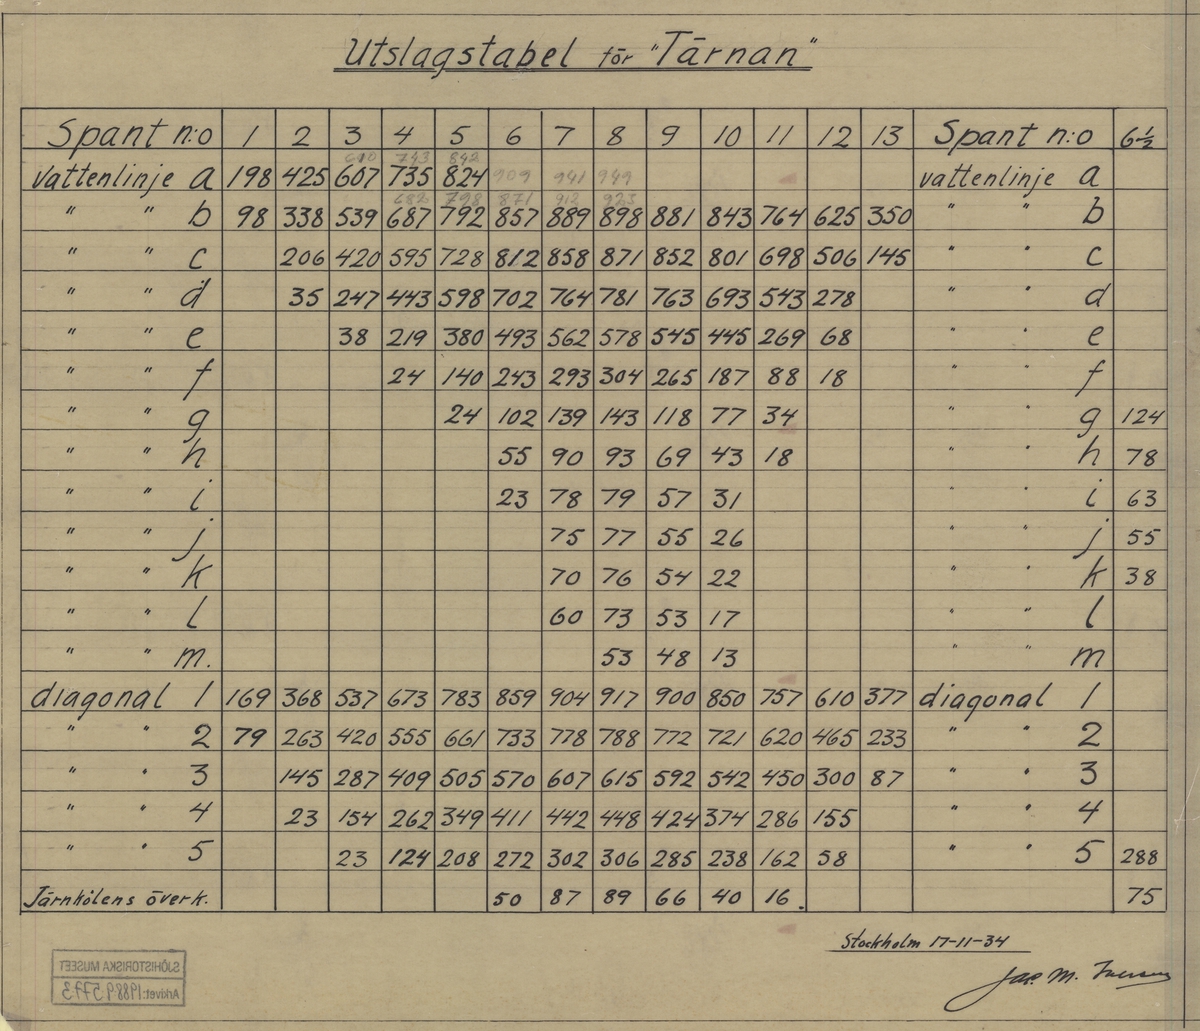 Utslagstabel för "Tärnan"
Spant n:o 1 2 3 4 5 6 7 8 9 10 11 12 13 Spant n:o 6½
610 743 842
vattenlinje a 198 425 607 735 824 909 941 949 vattenlinje a
682 798 871 912 923
" " b 98 338 539 687 792 857 889 898 881 843 764 625 350 " " b
" " c 206 420 595 728 812 858 871 852 801 698 506 145 " " c
" " d 35 247 443 598 702 764 781 763 693 543 278 " " d
" " e 38 219 380 493 562 578 545 445 269 68 " " e
" " f 24 140 243 293 304 265 187 88 18 " " f
" " g 24 102 139 143 118 77 34 " " g 124
" " h 55 90 93 69 43 18 " " h 78
" " i 23 78 79 57 31 " " i 63
" " j 75 77 55 26 " " j 55
" " k 70 76 54 22 " " k 38
" " l 60 73 53 17 " " l
" " m. 53 48 13 " " m
diagonal 1 169 368 537 673 783 859 904 917 900 850 757 610 377 diagonal 1
" " 2 79 263 420 555 661 733 778 788 772 721 620 465 233 " " 2
" " 3 145 287 409 505 570 607 615 592 542 450 300 87 " " 3
" " 4 23 154 262 349 411 442 448 424 374 286 155 " " 4
" " 5 23 124 208 272 302 306 285 238 162 58 " " 5 288
Järnkölens överk. 50 87 89 66 40 16. 75
Stockholm 17-11-34
Jac. M. Iversen
SJÖHISTORISKA MUSEET
Arkivet: 1988 9.5773